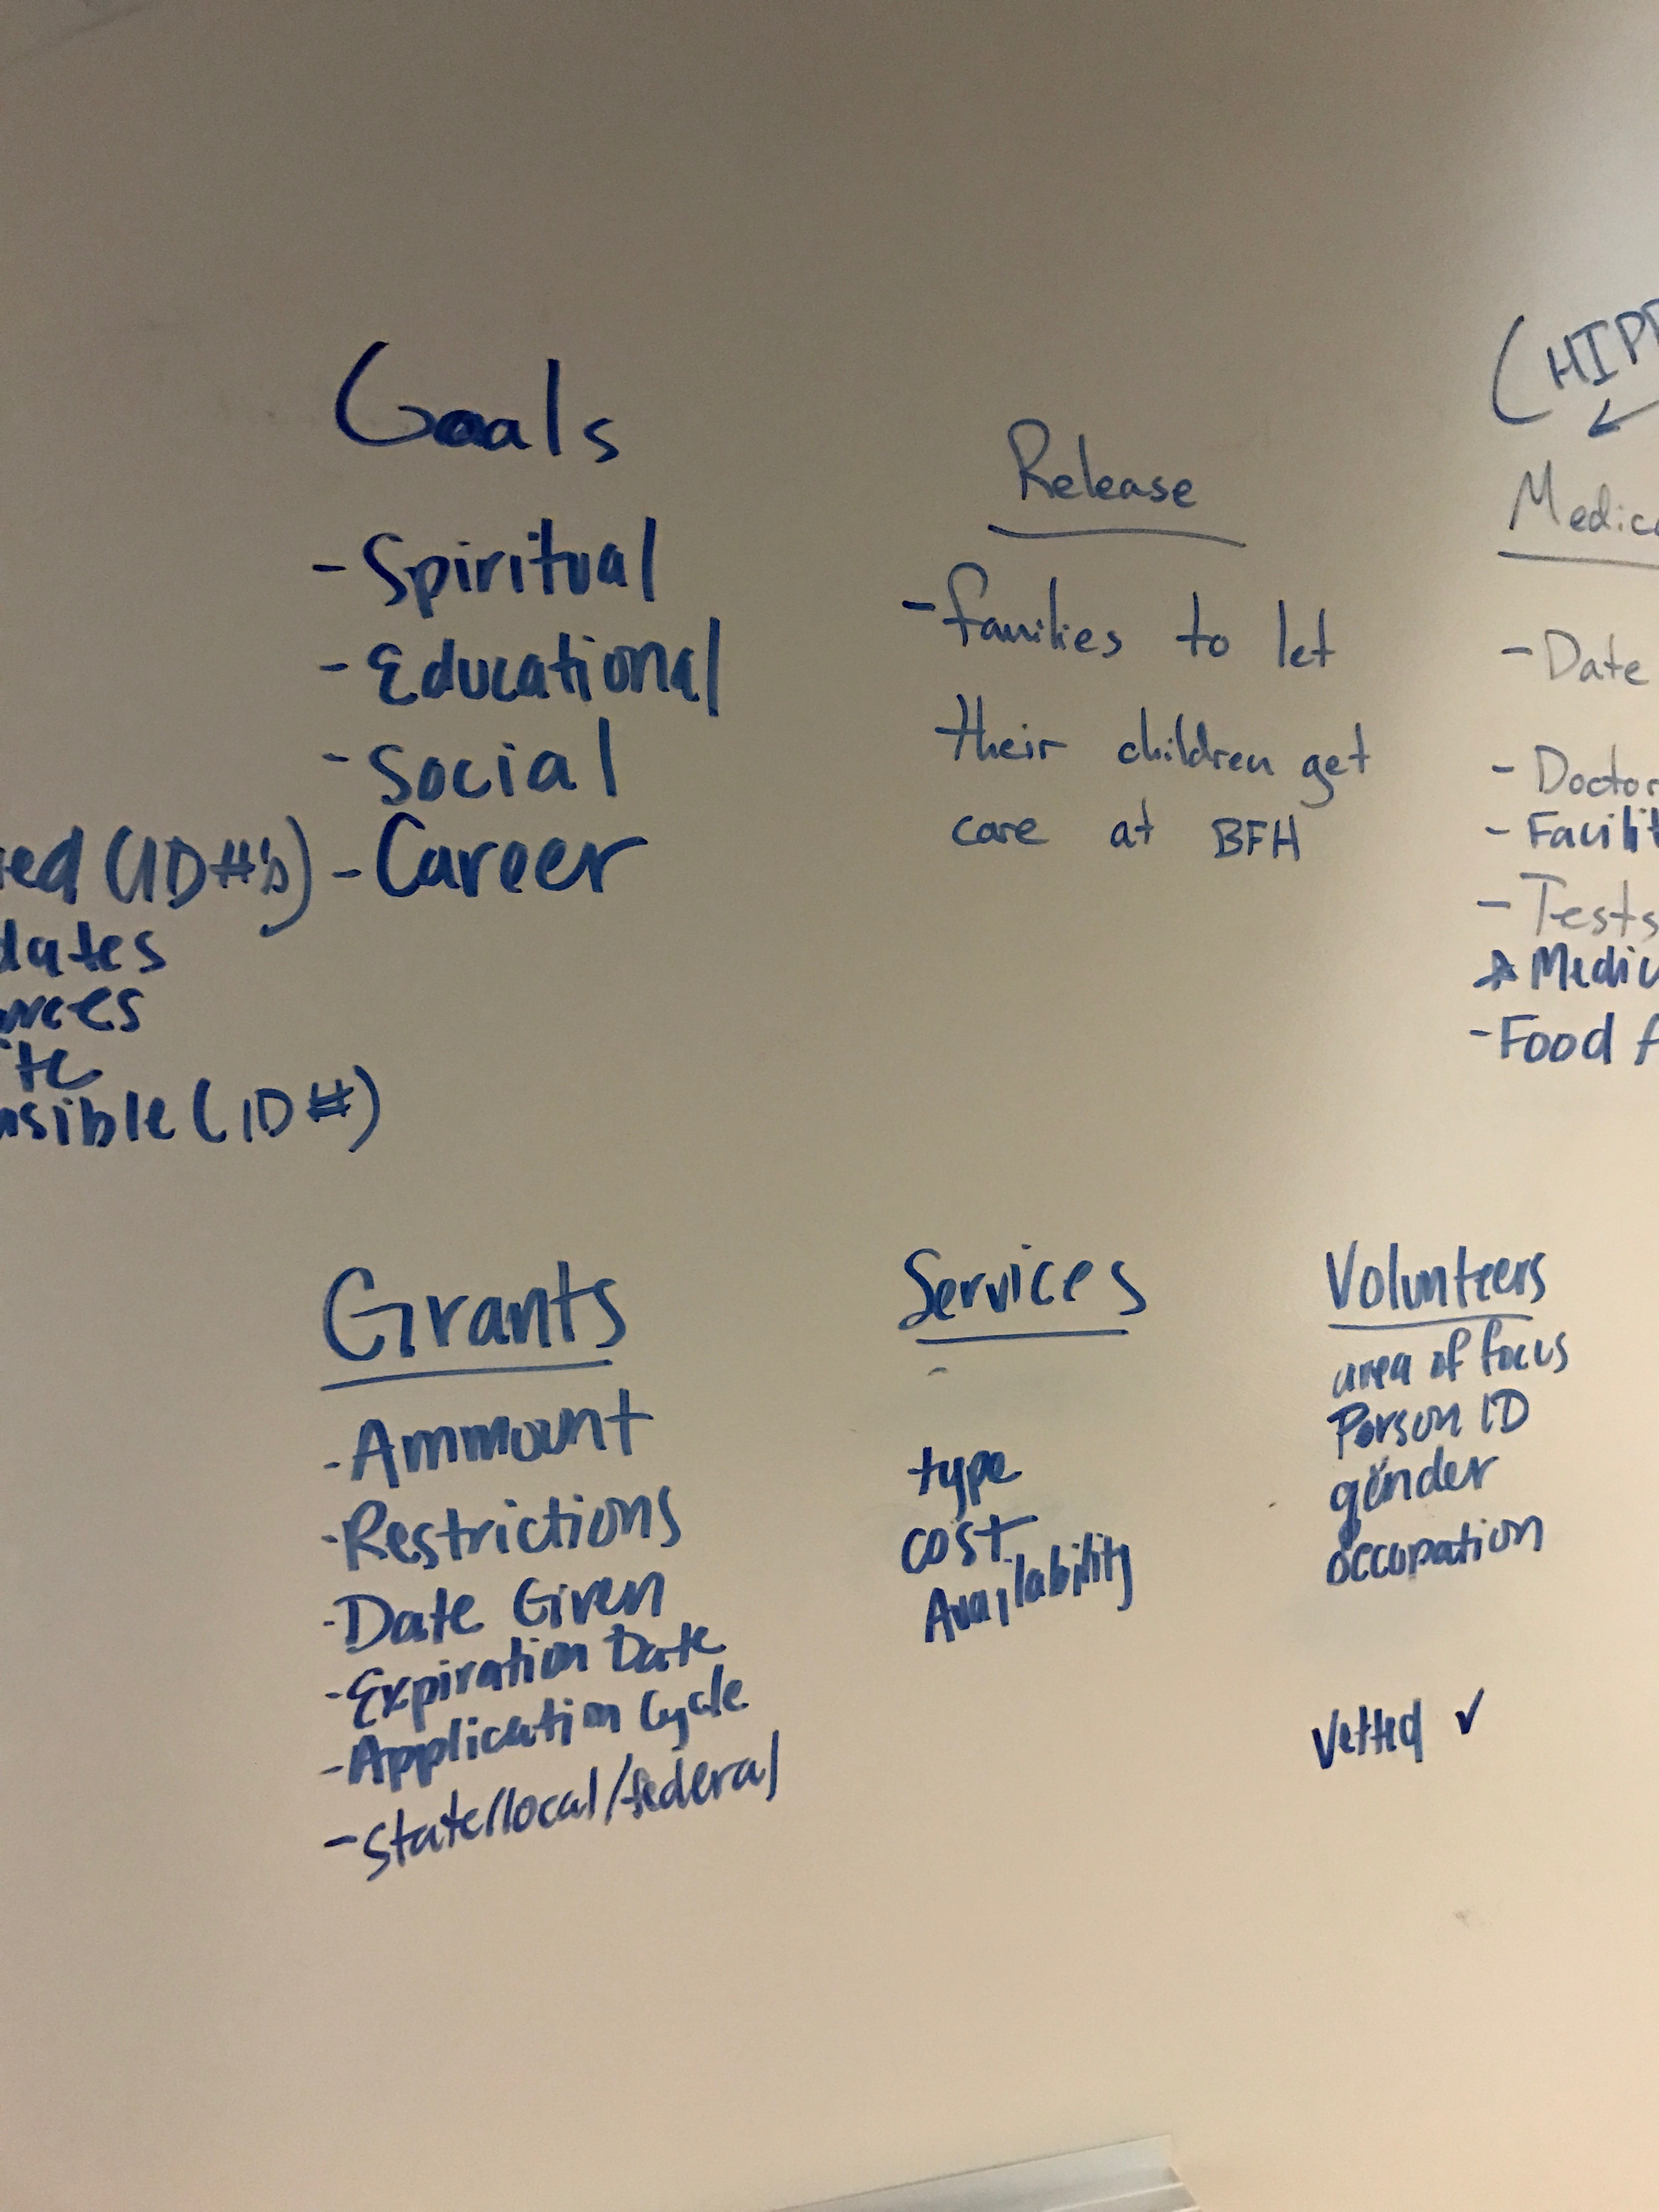 Goals
- Spiritual
- Educational
- Social
- Career
(ID#'s)
dates
(ID#)
Release
- families to let
their children get
care at BFH
(HIPP
Medic
- Date
- Doctor
- Facilit
- Tests
* Medic
- Food A
Grants
- Ammount
- Restrictions
- Date Given
- Expiration Date
- Application Cycle
- State/local/federal
Services
-
type
cost
Availability
Volunteers
area of focus
Person ID
gender
occupation
Vetted ✓